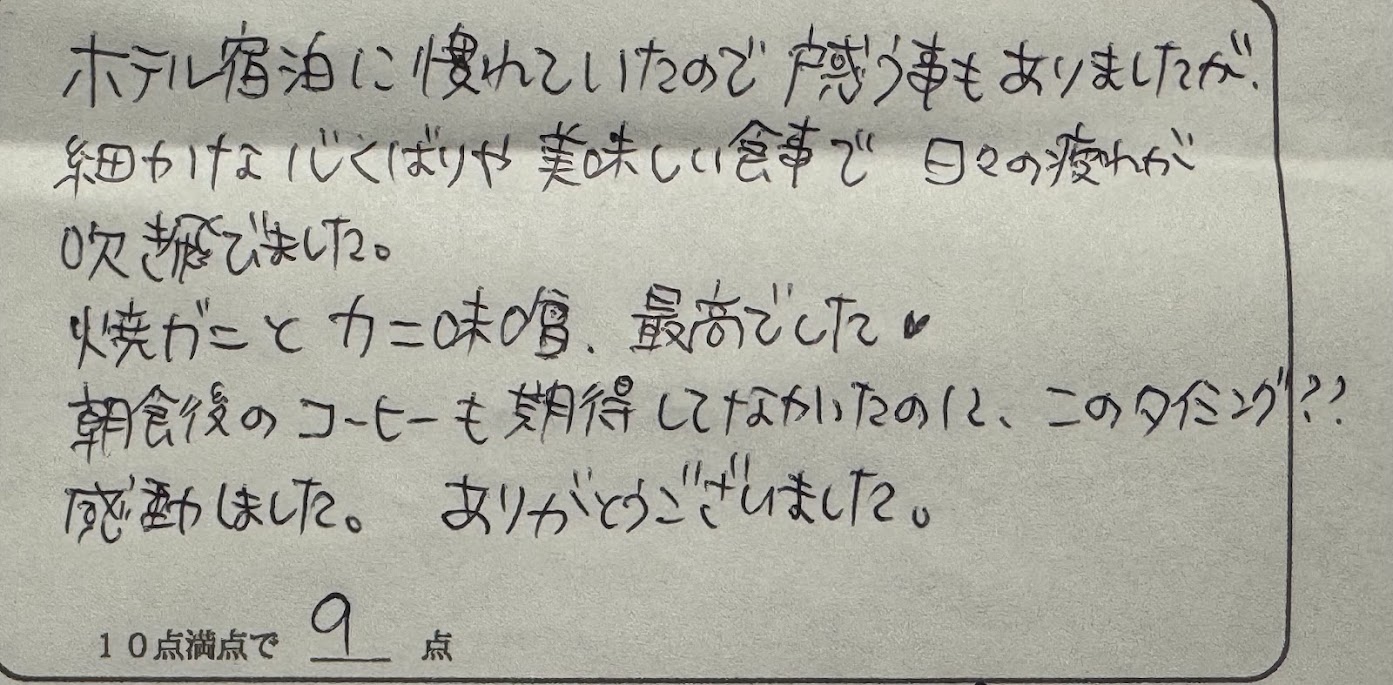 ホテル宿泊に慣れていたので戸惑う事もありましたが、
細かけな心くばりや美味しい食事で 日々の疲れが
吹き飛びました。
焼ガニとカニ味噌、最高でした♥
朝食後のコーヒーも期待してなかったのに、このタイミング??
感動しました。 ありがとうございました。
10点満点で 9 点